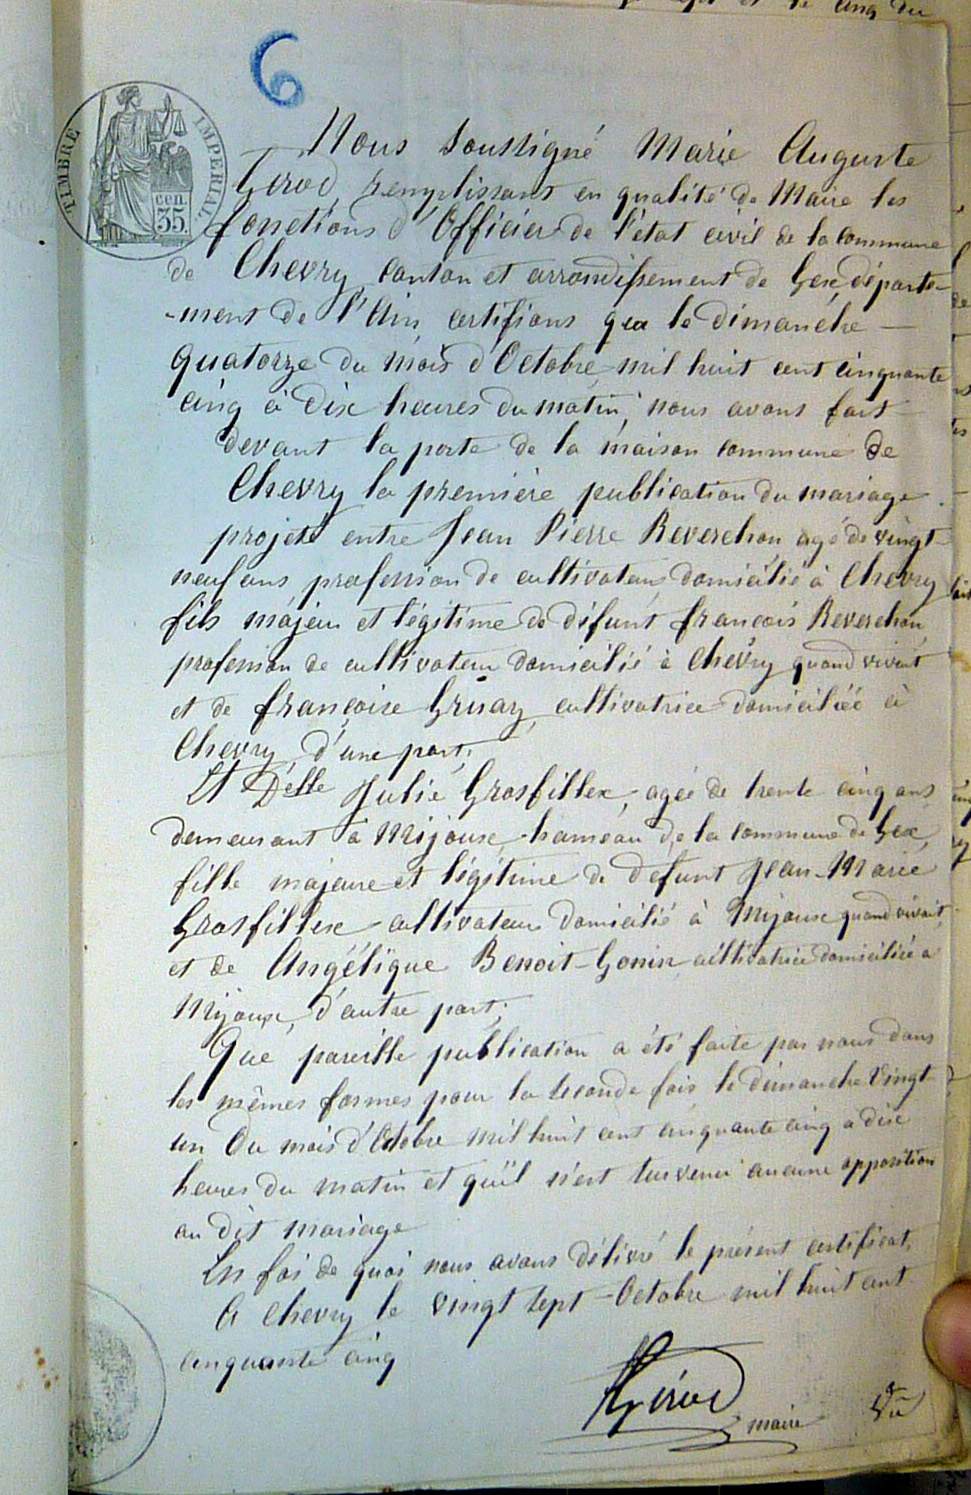 6
TIMBRE IMPERIAL
cen.
35.
Nous soussigné Marie Auguste
Girod, remplissant en qualité de Maire les
fonctions d'Officier de l'état civil de la commune
de Chevry, canton et arrondissement de Gex départe-
-ment de l'Ain certifions que le dimanche
quatorze du mois d'Octobre mil huit cent cinquante
cinq à dix heures du matin, nous avons fait
devant la porte de la maison commune de
Chevry la première publication du mariage
projeté entre Jean Pierre Reverchon agé de vingt
neuf ans, profession de cultivateur domicilié à Chevry
fils majeur et légitime de défunt françois Reverchon,
profession de cultivateur domicilié à Chevry quand vivait
et de françoise Grusaz, cultivatrice domiciliée à
Chevry, d'une part;
Et Delle Julie Grosfillex, agée de trente cinq ans
demeurant à Mijoux, hameau de la commune de Gex,
fille majeure et légitime de defunt Jean-Marie
Grosfillex cultivateur domicilié à Mijoux quand vivait,
et de Angélique Benoit-Gonin cultivatrice domiciliée a
Mijoux, d'autre part;
Que pareille publication a été faite par nous dans
les mêmes formes pour la seconde fois le dimanche Vingt
un du mois d'Octobre mil huit cent cinquante cinq a dix
heures du matin et qu'il n'est survenu aucune opposition
au dit mariage
En foi de quoi nous avons délivré le présent certificat.
A Chevry le vingt sept Octobre mil huit cent
cinquante cinq
Girod
maire
Vu